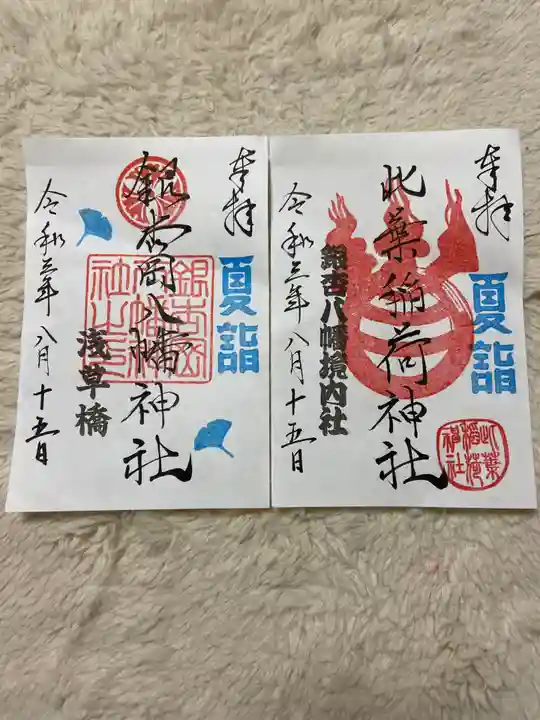 奉拝
夏詣
此葉稲荷神社
銀杏八幡境内社
令和三年八月十五日
此葉
稲荷
神社
奉拝
夏詣
銀杏岡八幡神社
浅草橋
令和三年八月十五日
銀杏岡
八幡神
社之印